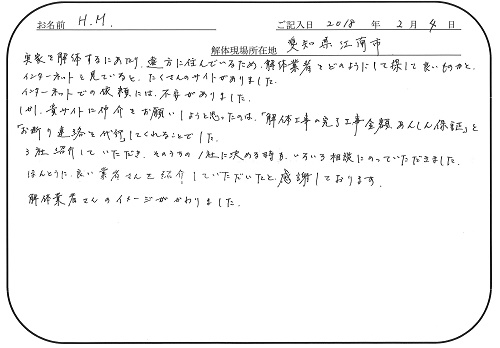 お名前 H.M. ご記入日 2018 年 2 月 4 日
解体現場所在地 愛知県江南市
実家を解体するにあたり、遠方に住んでいるため、解体業者をどのようにして探して良いものかと、
インターネットを見ていると、たくさんのサイトがありました。
インターネットでの依頼には、不安がありました。
しかし、貴サイトに仲介をお願いしようと思ったのは、「解体工事の完了工事金額あんしん保証」と
「お断り連絡を代行してくれること」でした。
3社紹介していただき、そのうちの1社に決める時も、いろいろ相談にのっていただきました。
ほんとうに、良い業者さんを紹介していただいたと、感謝しております。
解体業者さんのイメージがかわりました。